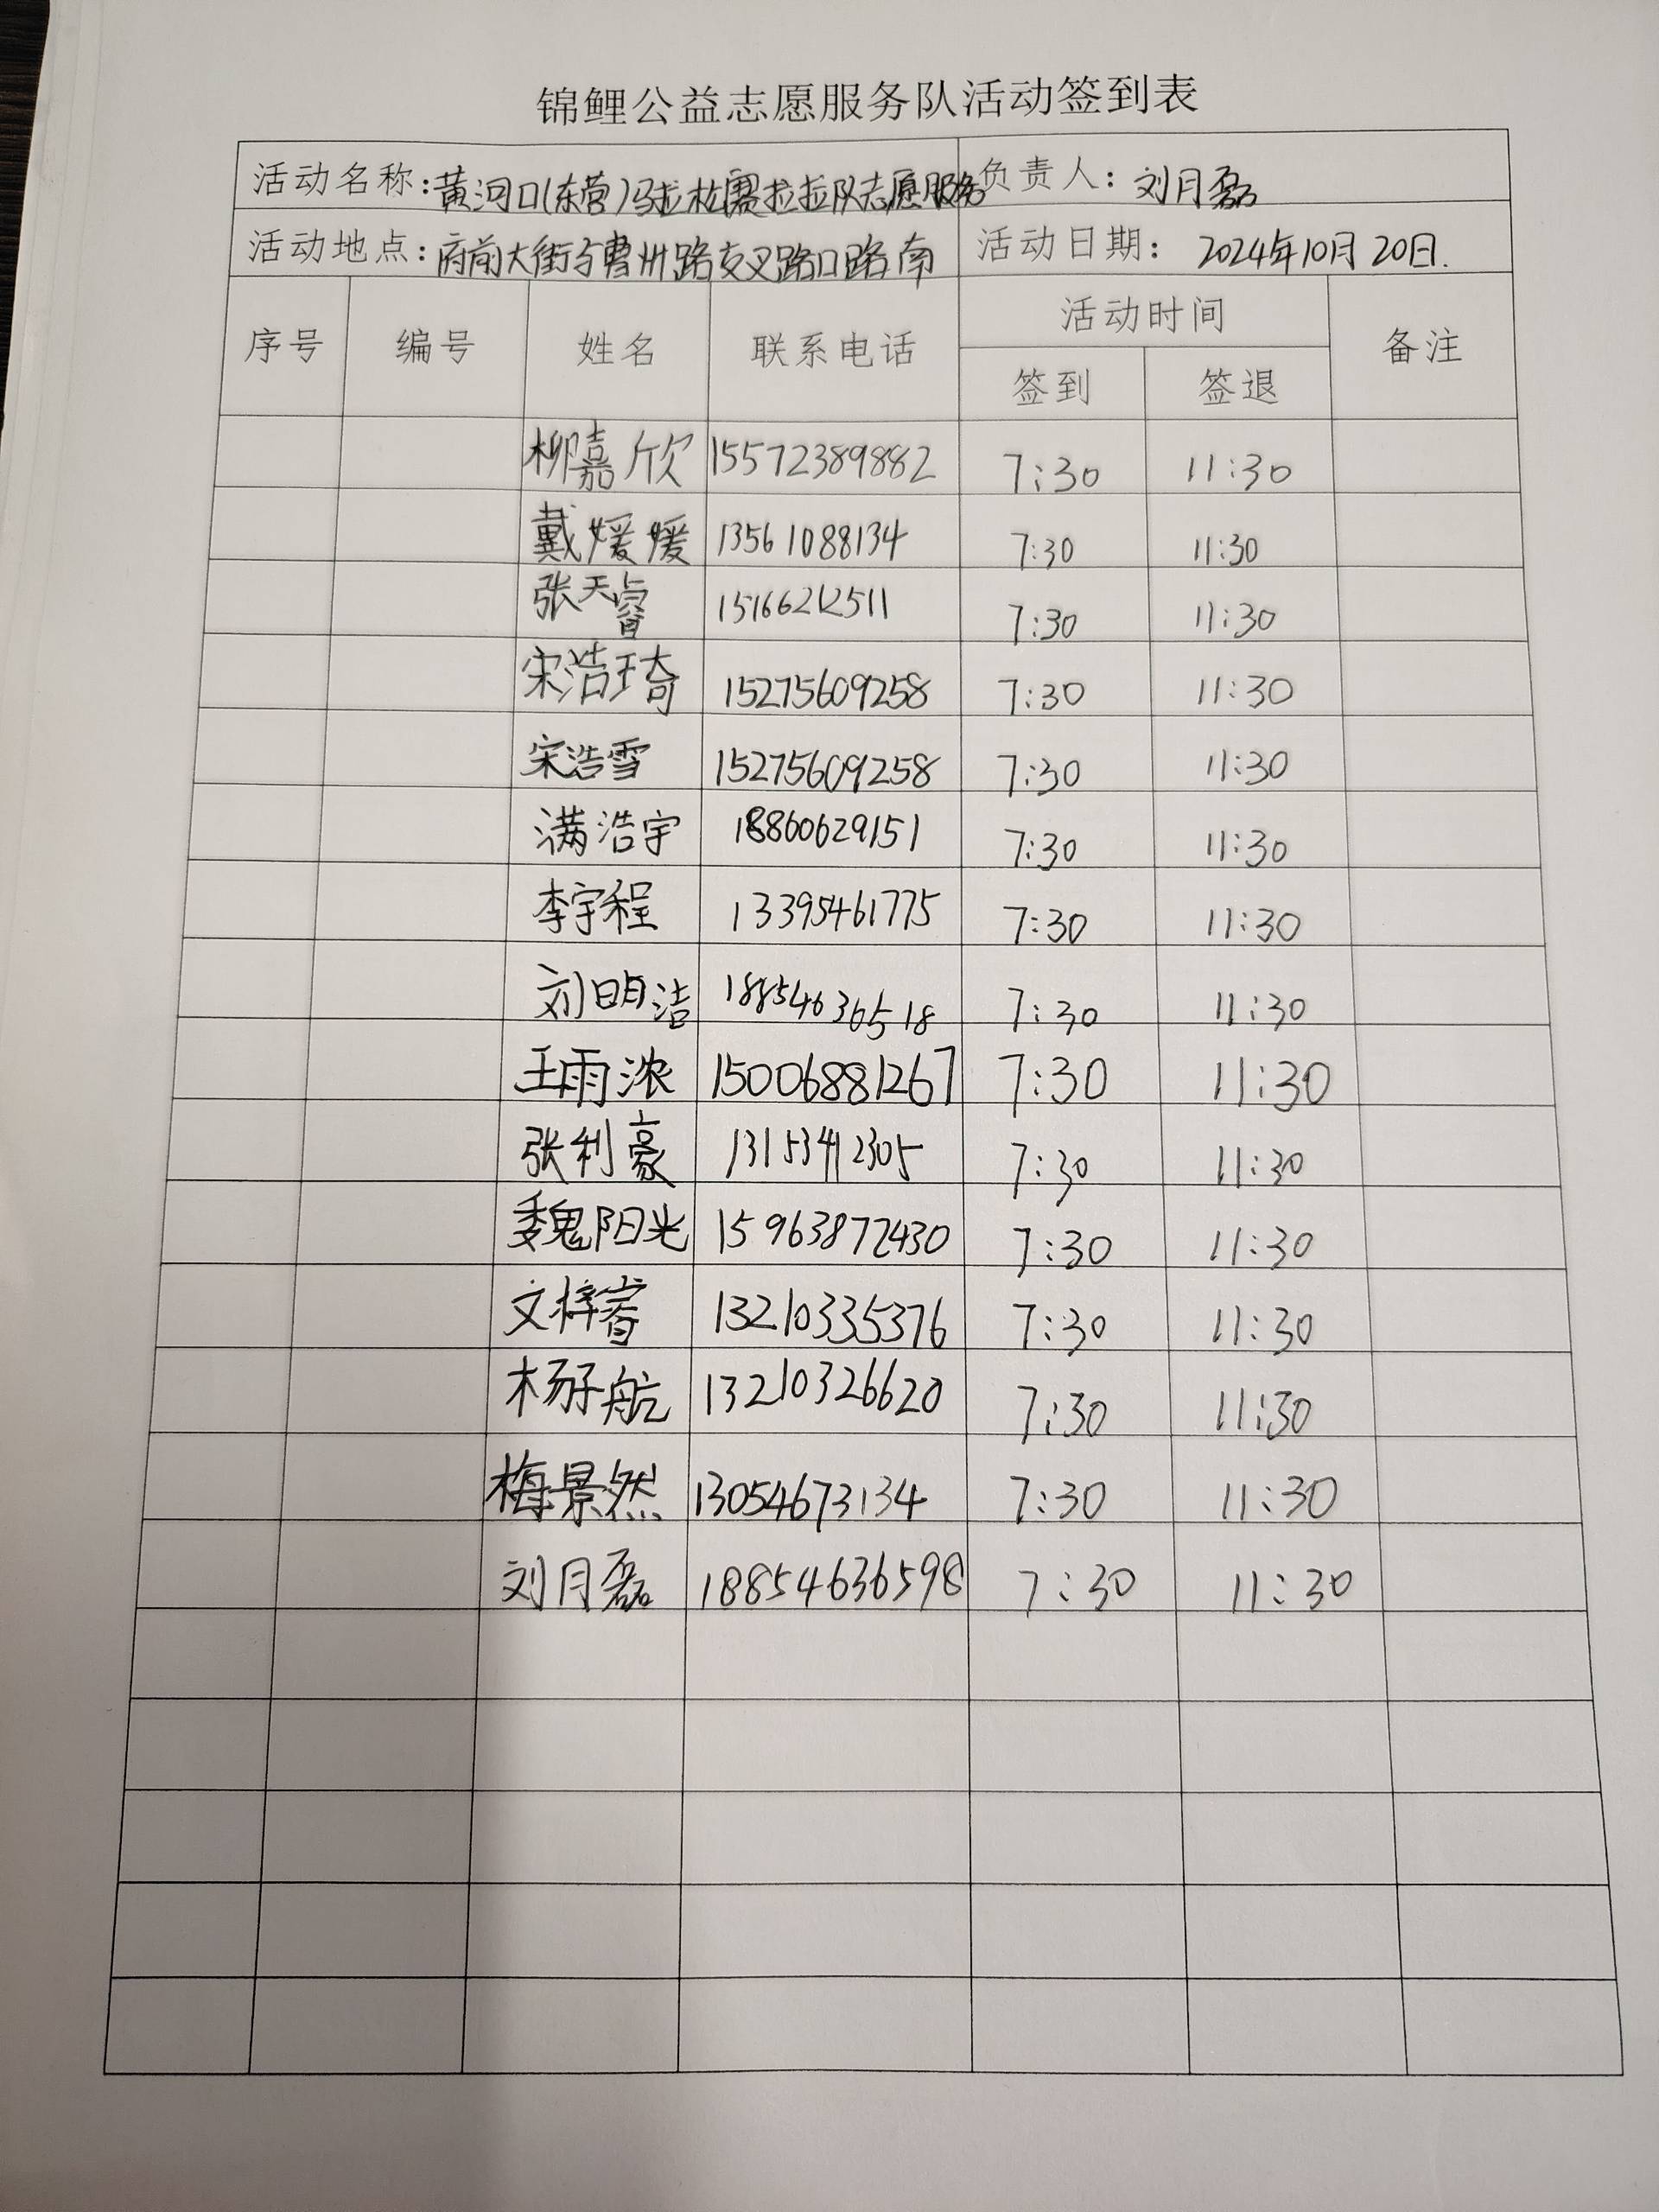 锦鲤公益志愿服务队活动签到表
活动名称:黄河口(东营)马拉松赛拉拉队志愿服务 负责人: 刘月磊
活动地点:府前大街与曹州路交叉路口路南 活动日期: 2024年10月20日.
序号 编号 姓名 联系电话 活动时间 备注
签到 签退
柳嘉欣 15572389882 7:30 11:30
戴媛媛 13561088134 7:30 11:30
张天睿 15166212511 7:30 11:30
宋浩琦 15275609258 7:30 11:30
宋浩雪 15275609258 7:30 11:30
满浩宇 18860629151 7:30 11:30
李宇程 13395461775 7:30 11:30
刘明洁 18854636518 7:30 11:30
王雨浓 15006881267 7:30 11:30
张利豪 13153412305 7:30 11:30
魏阳光 15963872430 7:30 11:30
文梓睿 13210335376 7:30 11:30
杨子航 13210326620 7:30 11:30
梅景然 13054673134 7:30 11:30
刘月磊 18854636598 7:30 11:30